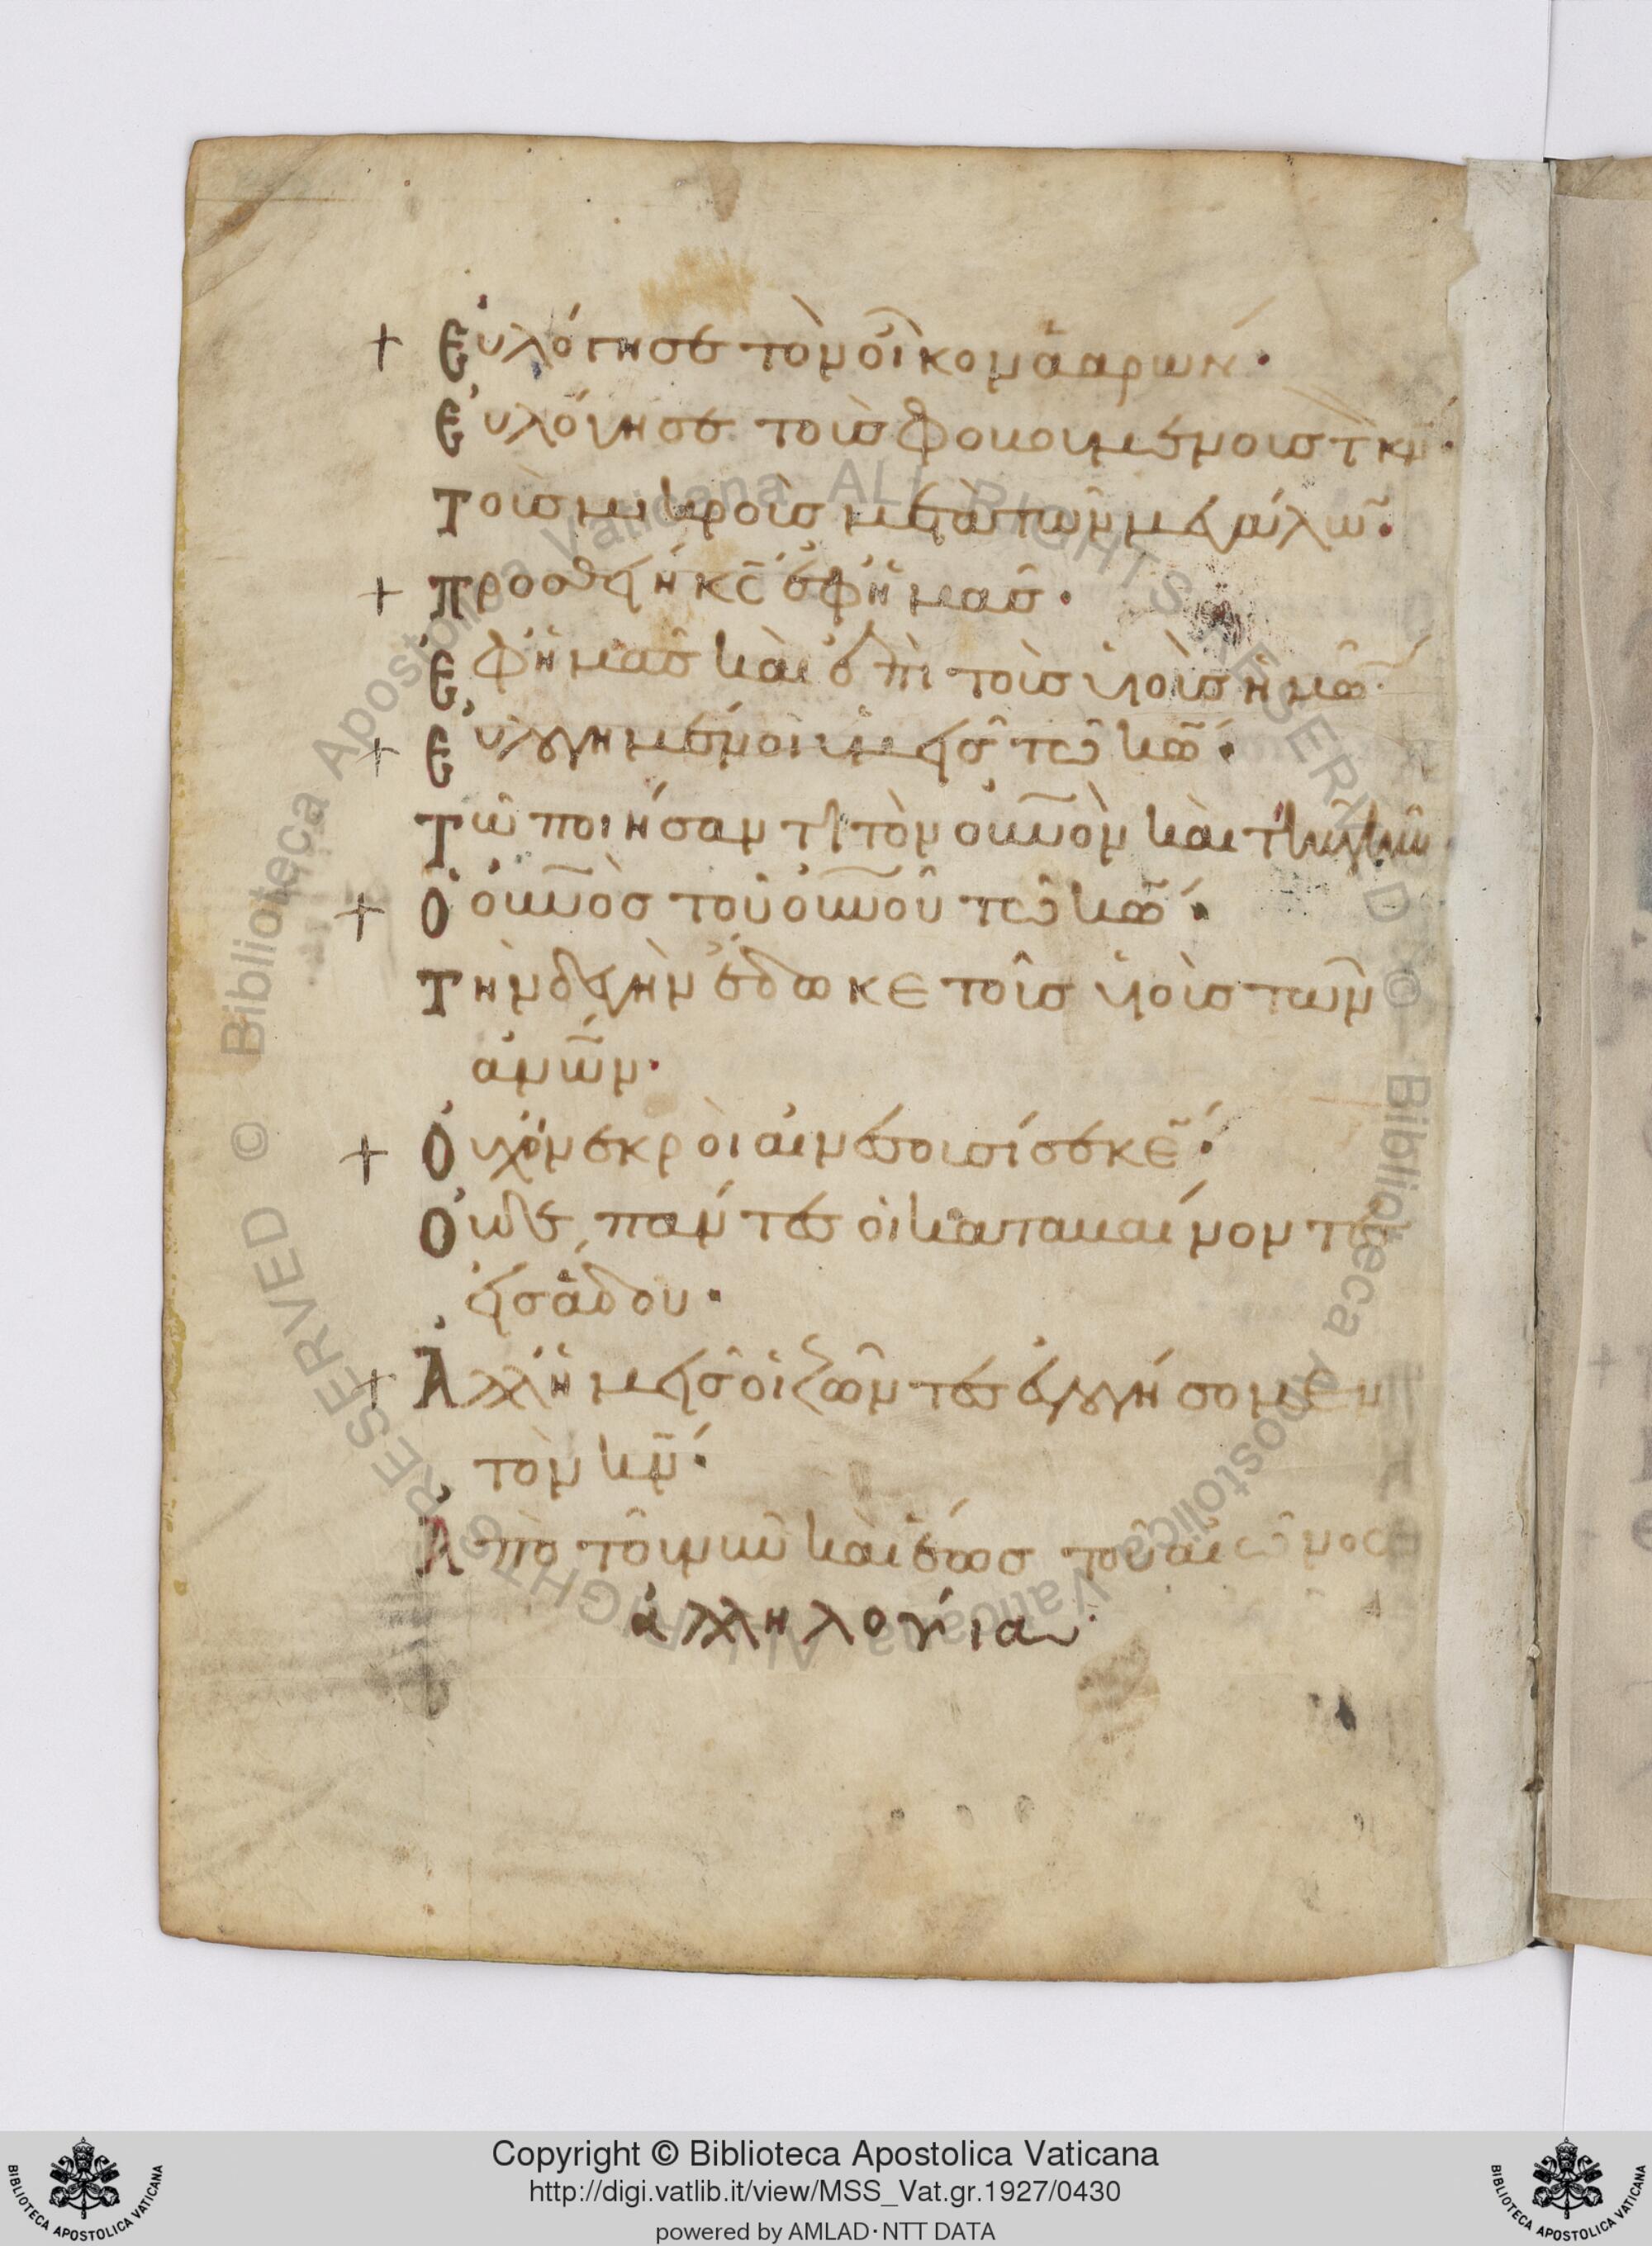 + Εὐλόγησε τὸν οἶκον ἀαρών·
Εὐλόγησε τοὺς φοβουμένους τὸν κν·
Τοὺς μικροὺς μετὰ τῶν μεγάλω̃·
+ προσθείη κς̄ ἐφ ἡμᾶς·
Ἐφ ἡμᾶς καὶ ἐπὶ τοὺς υἱοὺς ἡμῶ̃·
+ Εὐλογημένοι ὑμεῖς τῶ κω̃·
Τῶ ποιήσαντι τὸν οὐνο̃ν καὶ τὴν γῆν
+ Ὁ οὐνο̃ς τοῦ οὐνο̃υ τῶ κω̃·
τὴν δὲ γῆν ἔδωκε τοῖς υἱοῖς τῶν
ἀνω̃ν·
+ Οὐχ ὁι νεκροὶ αἰνέσουσί σε κε̃·
Οὐδὲ πάντες οἱ καταβαίνοντες
εἰς ἅδου·
+ Ἀλλ ἡμεῖς οἱ ζῶντες εὐλογήσομεν
τὸν κν̃·
Ἀπὸ τοῦ νῦν καὶ ἕως τοῦ αἰῶνος
ἀλληλούϊα
Biblioteca Apostolica Vaticana ALL RIGHTS RESERVED © Biblioteca Apostolica Vaticana ALL RIGHTS RESERVED ©
BIBLIOTECA APOSTOLICA VATICANA
Copyright © Biblioteca Apostolica Vaticana
http://digi.vatlib.it/view/MSS_Vat.gr.1927/0430
powered by AMLAD·NTT DATA
BIBLIOTECA APOSTOLICA VATICANA